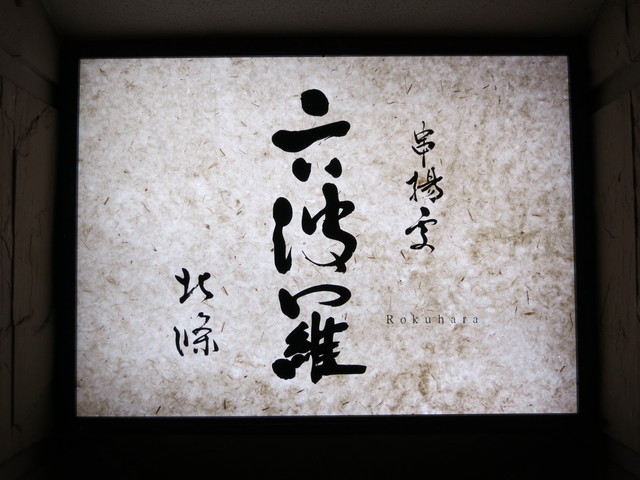 串揚處
Rokuhara
六波羅
北條